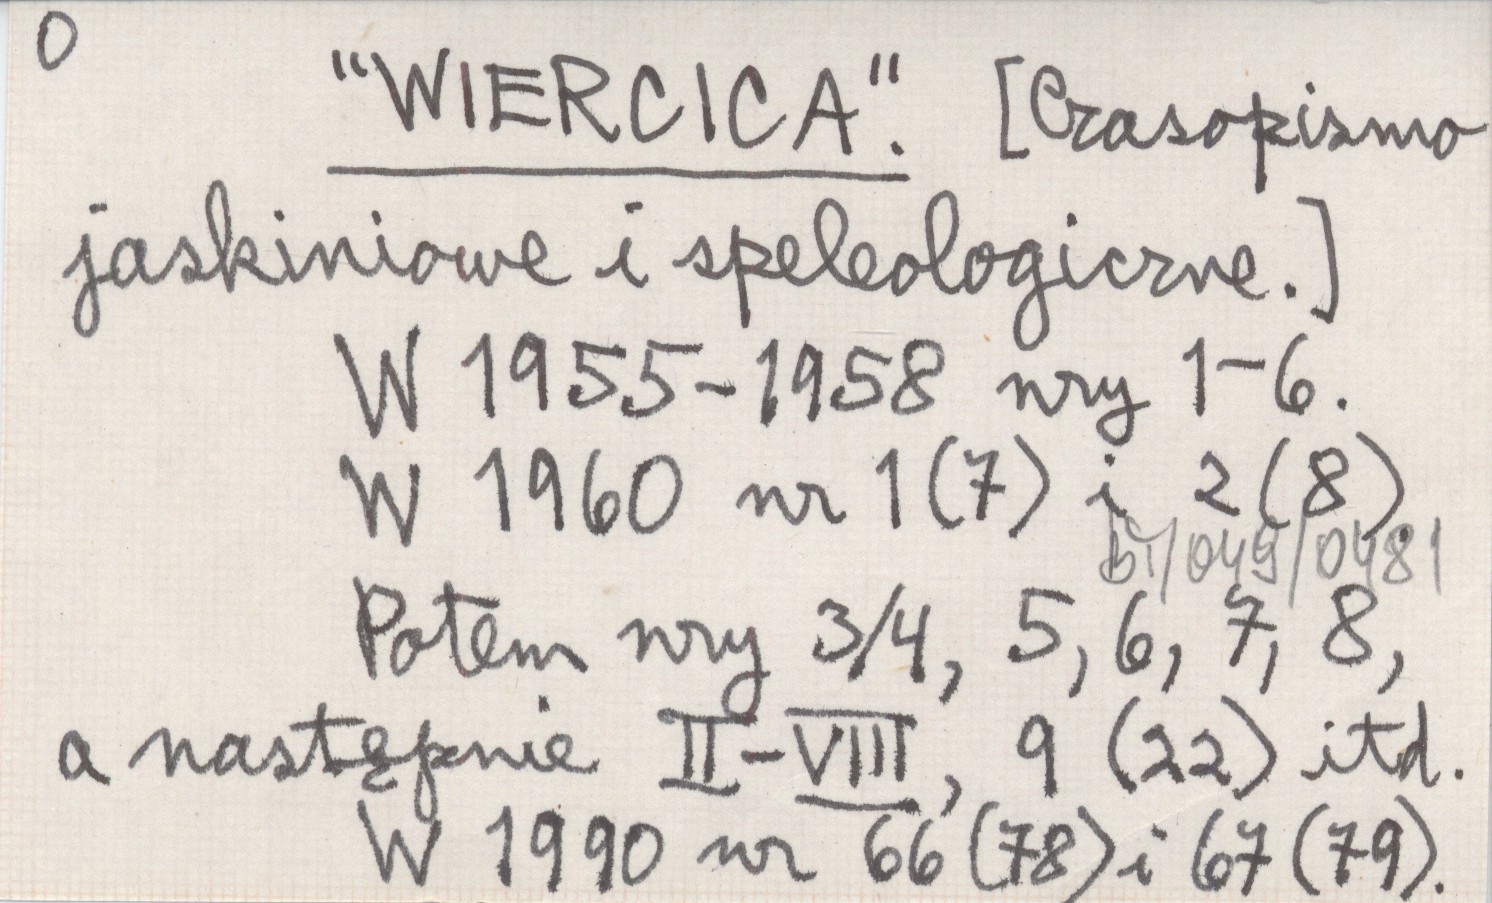 0
"WIERCICA". [Czasopismo
jaskiniowe i speleologiczne.]
W 1955-1958 nry 1-6.
W 1960 nr 1(7) i 2(8)
bi/049/0481
Potem nry 3/4, 5, 6, 7, 8,
a następnie II-VIII, 9 (22) itd.
W 1990 nr 66 (78) i 67 (79).